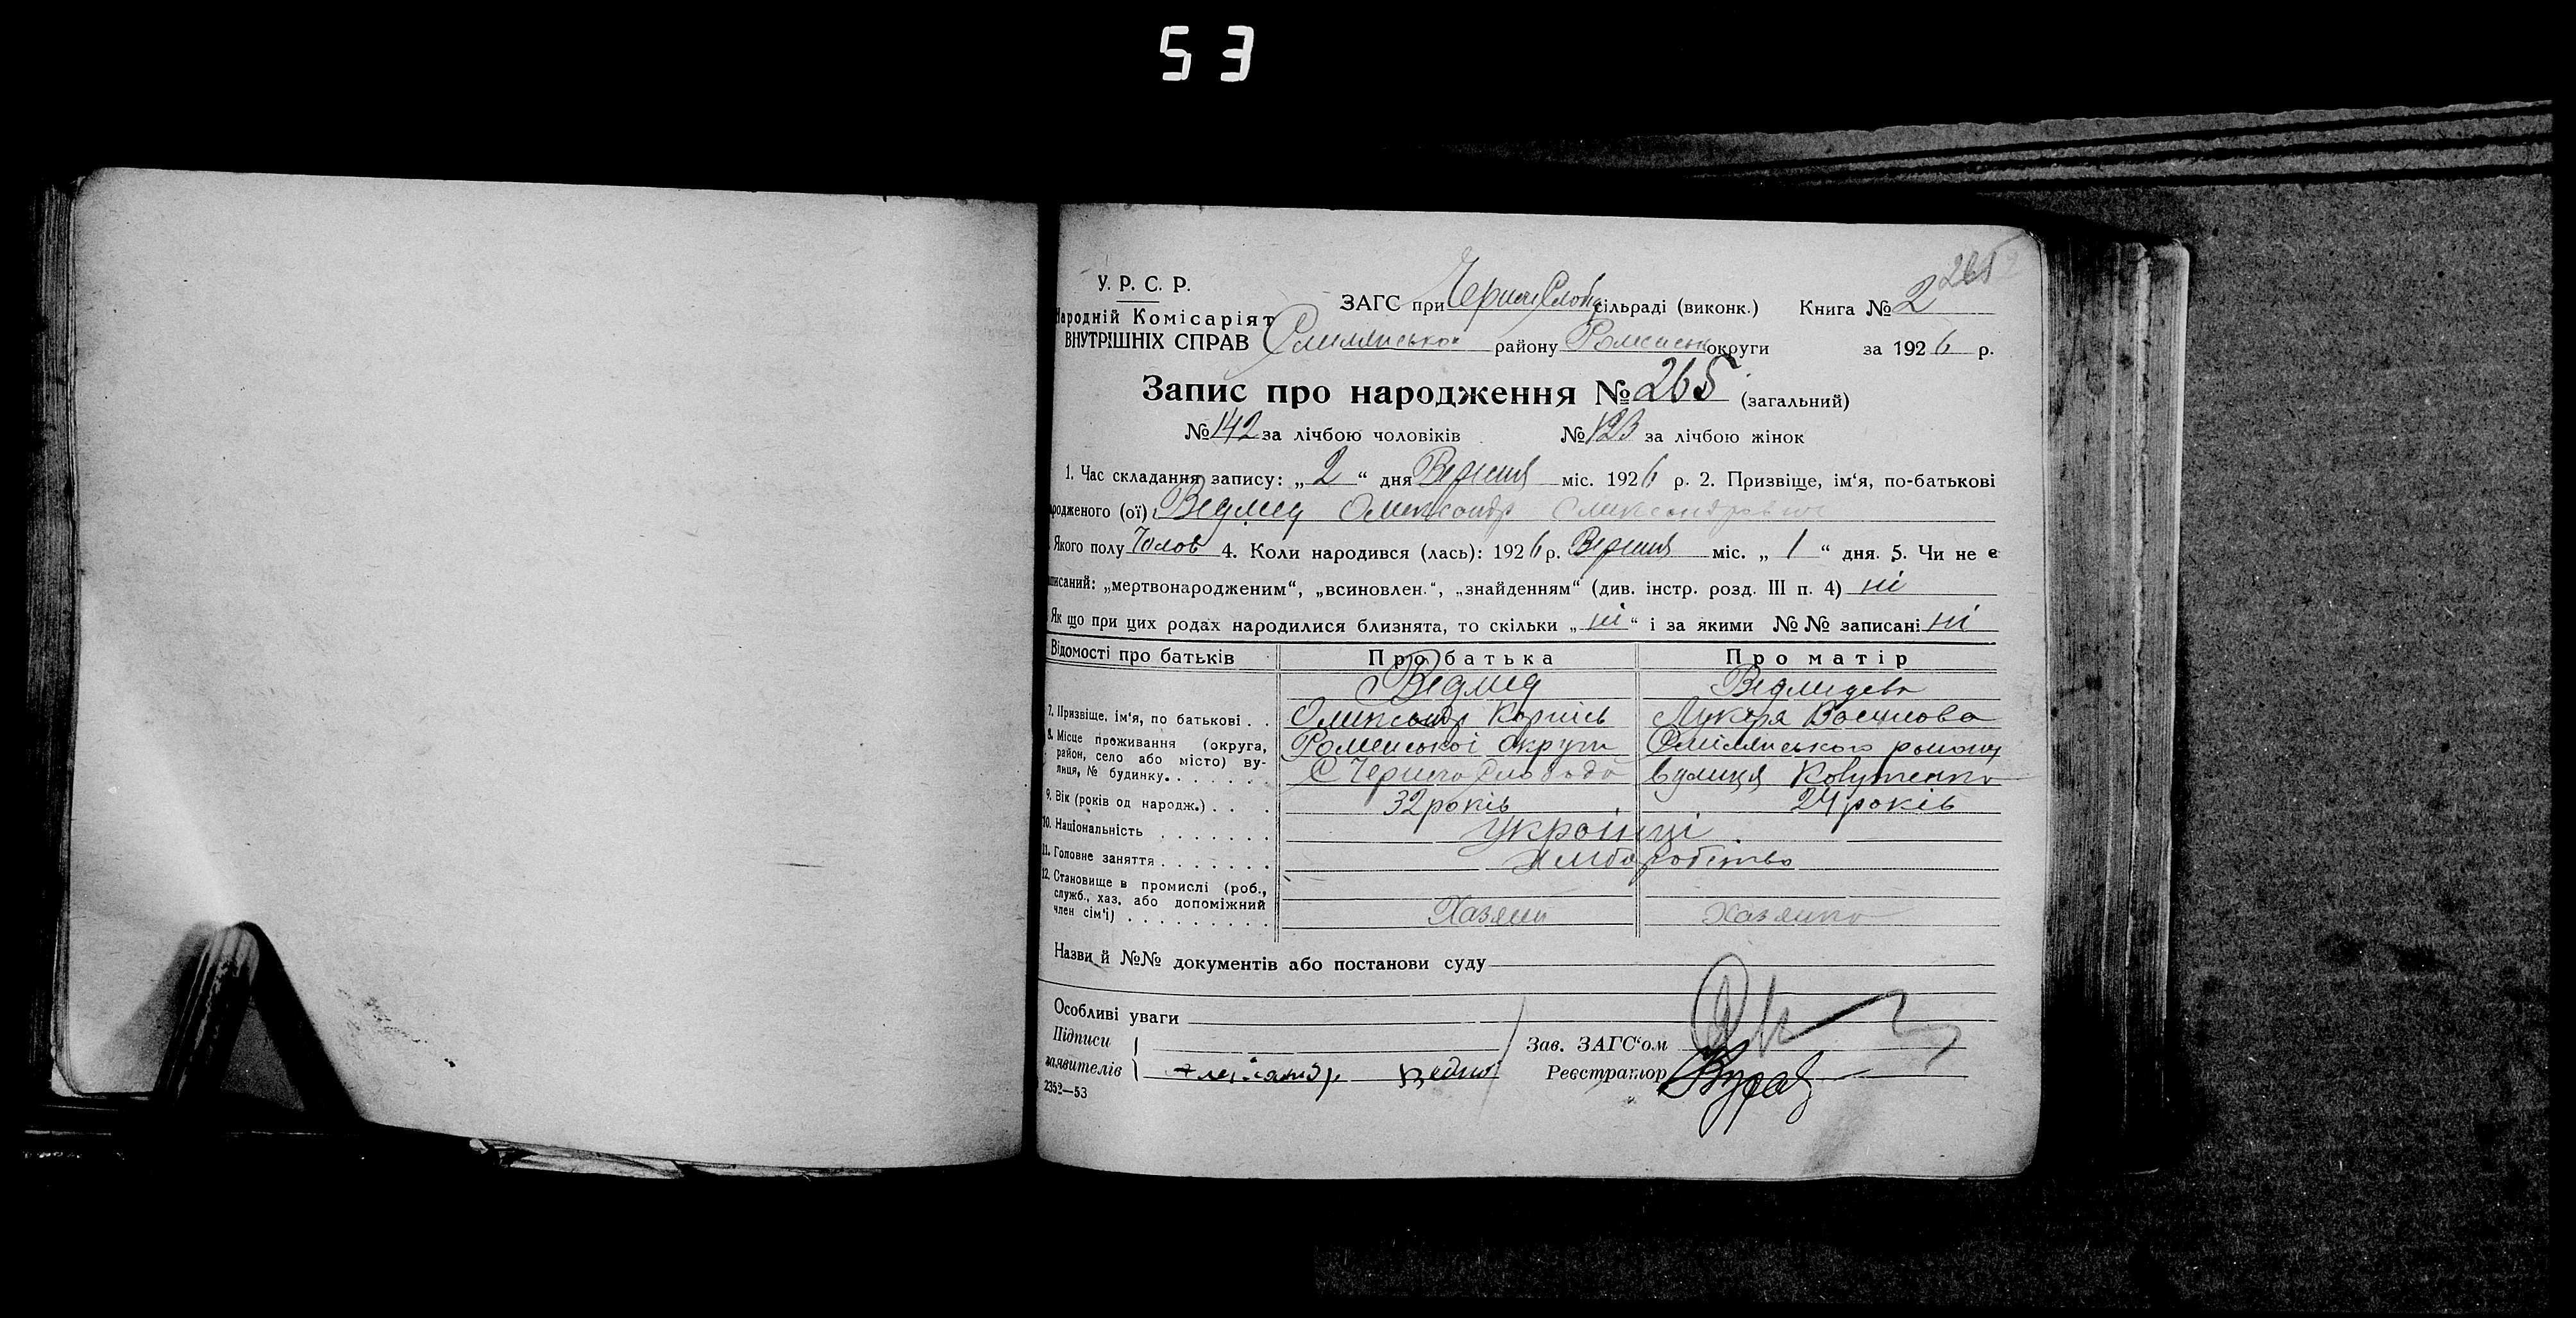 53
265
У. Р. С. Р.
Народній Комісаріят
ВНУТРІШНІХ СПРАВ
ЗАГС при сільраді (виконк.) Книга № 2
району округи за 1926 р.
Запис про народження № 265 (загальний)
№ 142 за лічбою чоловіків № 123 за лічбою жінок
1. Час складання запису: „ 2 “ дня Вересня міс. 1926 р. 2. Призвіще, ім‘я, по-батькові
родженого (ої) Ведмед Олександр
Якого полу Чолов 4. Коли народився (лась): 1926 р. Вересня міс. „ 1 “ дня. 5. Чи не є
писаний: „мертвонародженим“, „всиновлен.“, „знайденням“ (див. інстр. розд. III п. 4) ні
Як що при цих родах народилися близнята, то скільки „ ні “ і за якими №№ записані ні
Відомості про батьків Про батька Про матір
Ведмед Ведмедева
7. Призвіще, ім‘я, по батькові . . Олександр Корнієв Лукеря Василова
8. Місце проживання (округа, район, село або місто) вулиця, № будинку. Роменської округи району
С Чернеча Слобода вулиця
9. Вік (років од народж.) . . . 32 років 24 років
10. Національність . . . . . . . українці
11. Головне заняття . . . . . . . хліборобство
12. Становище в промислі (роб.,
служб., хаз. або допоміжний
член сім‘ї) . . . . . . . . . Хазяин хазяика
Назви й №№ документів або постанови суду
Особливі уваги
Підписи
заявителів
Зав. ЗАГС‘ом
Реєстратор
2352—53